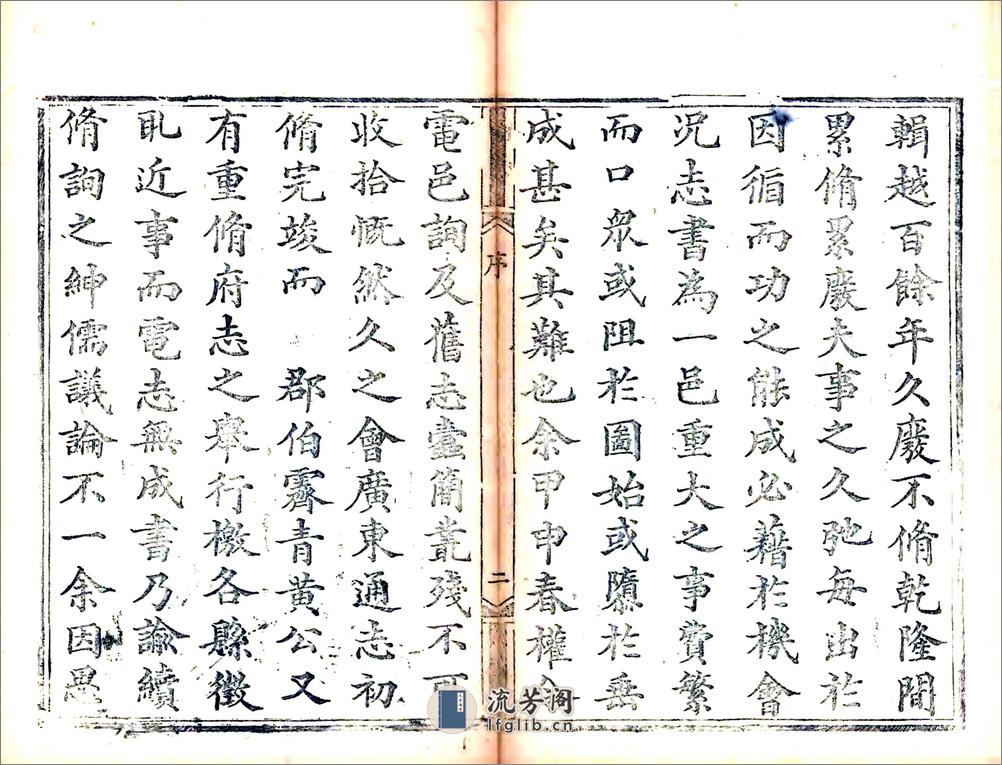 輯越百餘年久廢不脩乾隆間
累脩累廢夫事之久弛每出於
因循而功之能成必藉於機會
况志書為一邑重大之事費繁
而口眾或阻於圖始或隳於垂
成甚矣其難也余甲申春權
序
二
電邑詢及舊志蠹簡叢殘不可
收拾慨然久之會廣東通志初
脩完竣而 郡伯霽青黃公又
有重脩府志之舉行檄各縣徵
取近事而電志無成書乃諭續
脩詢之紳儒議論不一余因思
流芳阁
lfglib.cn